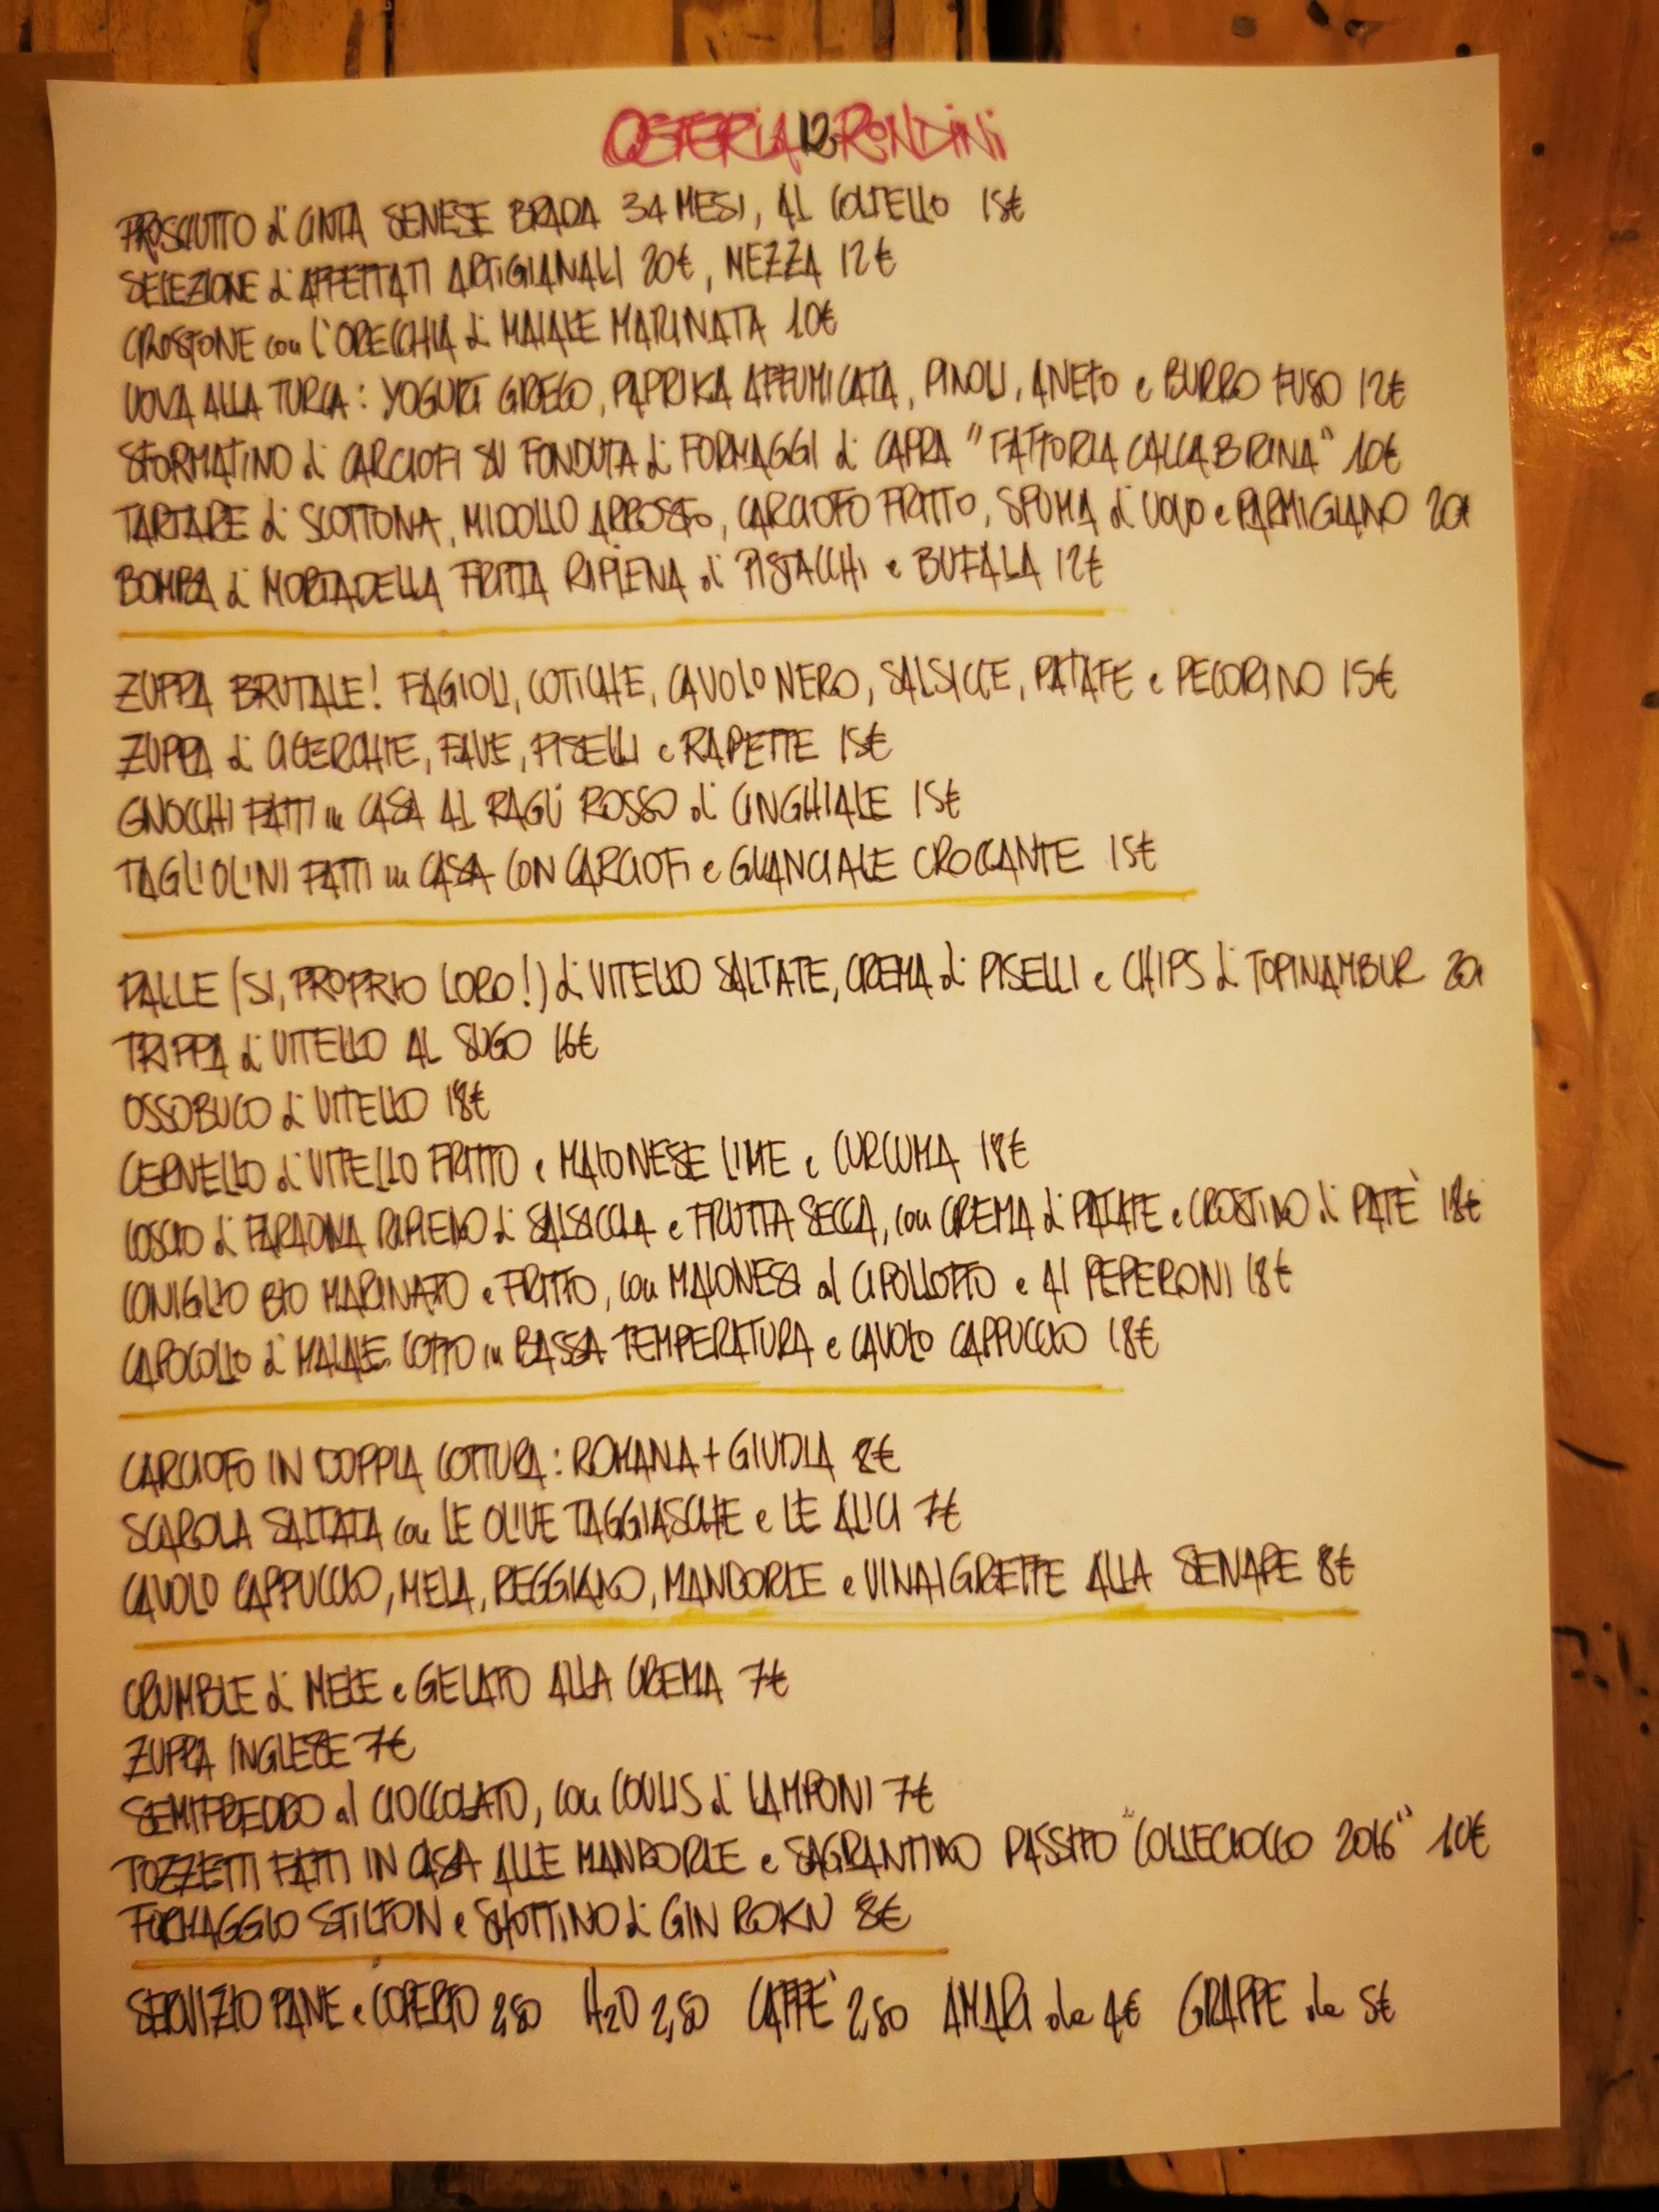 OSTERIA 12 RONDINI
PROSCIUTTO di CINTA SENESE BRADA 34 MESI, AL COLTELLO 15€
SELEZIONE di AFFETTATI ARTIGIANALI 20€, MEZZA 12€
CROSTONE con l'ORECCHIA di MAIALE MARINATA 10€
UOVA ALLA TURCA: YOGURT GRECO, PAPRIKA AFFUMICATA, PINOLI, ANETO e BURRO FUSO 12€
SFORMATINO di CARCIOFI SU FONDUTA di FORMAGGI di CAPRA "FATTORIA CALCABRINA" 10€
TARTARE di SCOTTONA, MIDOLLO ARROSTO, CARCIOFO FRITTO, SPUMA di UOVO e PARMIGIANO 20
BOMBA di MORTADELLA FRITTA RIPIENA di PISTACCHI e BUFALA 12€
ZUPPA BRUTALE! FAGIOLI, COTICHE, CAVOLO NERO, SALSICCE, PATATE e PECORINO 15€
ZUPPA di CICERCHIE, FAVE, PISELLI e RAPETTE 15€
GNOCCHI FATTI in CASA AL RAGÙ ROSSO di CINGHIALE 15€
TAGLIOLINI FATTI in CASA CON CARCIOFI e GUANCIALE CROCCANTE 15€
PALLE (SI, PROPRIO LORO!) di VITELLO SALTATE, CREMA di PISELLI e CHIPS di TOPINAMBUR 20
TRIPPA di VITELLO AL SUGO 16€
OSSOBUCO di VITELLO 18€
CERVELLO di VITELLO FRITTO e MAIONESE LIME e CURCUMA 18€
COSCIO di FARAONA RIPIENO di SALSICCIA e FRUTTA SECCA, con CREMA di PATATE e CROSTINO di PATÈ 18€
CONIGLIO BIO MARINATO e FRITTO, con MAIONESI al CIPOLLOTTO e AI PEPERONI 18€
CAPOCOLLO di MAIALE COTTO in BASSA TEMPERATURA e CAVOLO CAPPUCCIO 18€
CARCIOFO IN DOPPIA COTTURA: ROMANA + GIUDIA 8€
SCAROLA SALTATA con LE OLIVE TAGGIASCHE e LE ALICI 7€
CAVOLO CAPPUCCIO, MELA, REGGIANO, MANDORLE e VINAIGRETTE ALLA SENAPE 8€
CRUMBLE di MELE e GELATO ALLA CREMA 7€
ZUPPA INGLESE 7€
SEMIFREDDO al CIOCCOLATO, con COULIS di LAMPONI 7€
TOZZETTI FATTI IN CASA ALLE MANDORLE e SAGRANTINO PASSITO "COLLECIOCCO 2016" 10€
FORMAGGIO STILTON e SHOTTINO di GIN ROKU 8€
SERVIZIO PANE e COPERTO 2,50 H2O 2,50 CAFFE' 2,50 AMARI da 4€ GRAPPE da 5€